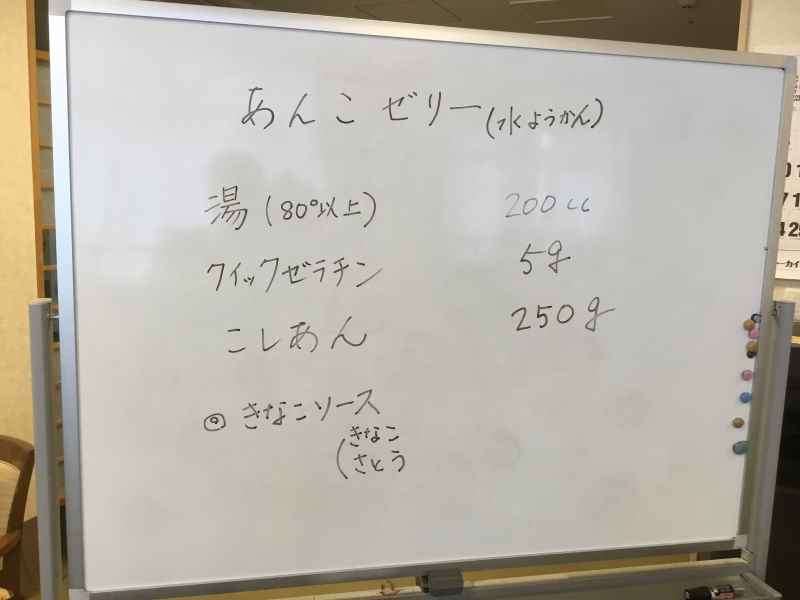 あんこゼリー(水ようかん)
湯(80°以上) 200cc
クイックゼラチン 5g
こしあん 250g
◎きなこソース
(きなこ
さとう